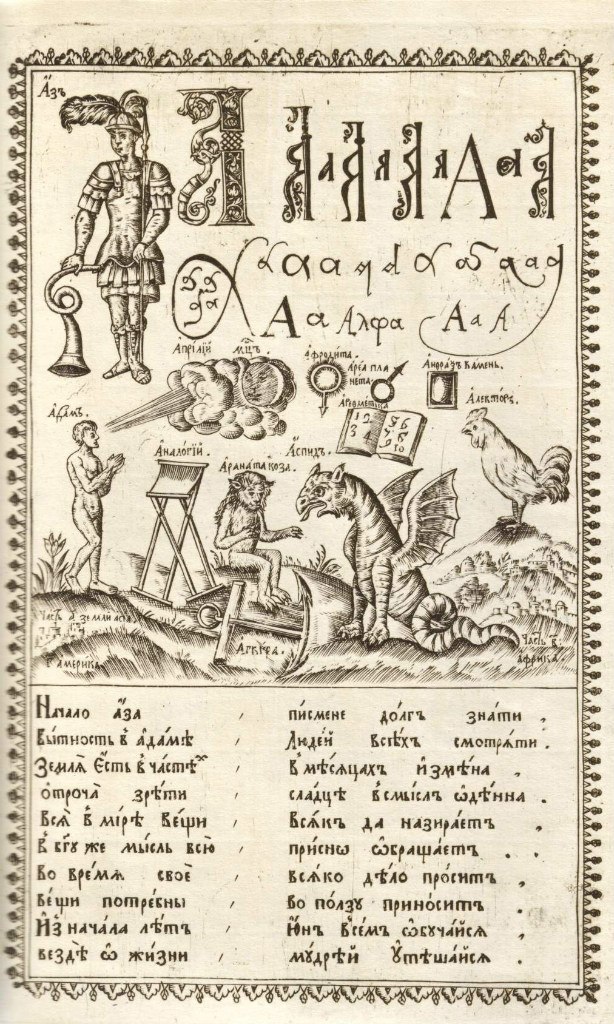 А҆зъ
А Я а Я я Я я А а А
а а а я а а а а а а
А а Алфа А а А
Апрілїй Мц҃ъ.
Афродита.
Ареа пла
нета
Анѳраѯъ Камень.
Арѳметіка
1 2 3 4 5 6 7 8 9 10
Алекторъ.
Адамъ.
Аналогїй.
Аспидъ.
Коза.
Часть а҃ земли
Америка
Агкѵра.
Часть в҃
Африка.
Начало а҆за , писмене долгъ знати ,
Бытность в̾ а҆да́мѣ , Людей всѣхъ смотряти .
Землѧ̀ Е҆сть в̾ частѣⷯ , в̾ мѣсѧцахъ и҆змѣна ,
отроча̀ зрѣти , сладцѣ в̾смыслъ ѡ҆дѣнна .
всѧ̀ в̾ мѣрѣ ве́щи , всѧкъ да назираетъ ,
в̾ бг҃у же мысль всю̀ , присно ѡ҆бращаетъ .
во времѧ своѐ , всѧко дѣло проситъ ,
вещи потребны , во по́лзу приноситъ ,
И҆з̾ начала лѣтъ , И҆нъ всѣмъ ѡ҆бучайсѧ ,
вездѣ ѡ҆ жизни , мудрѣй у҆тѣшайсѧ .